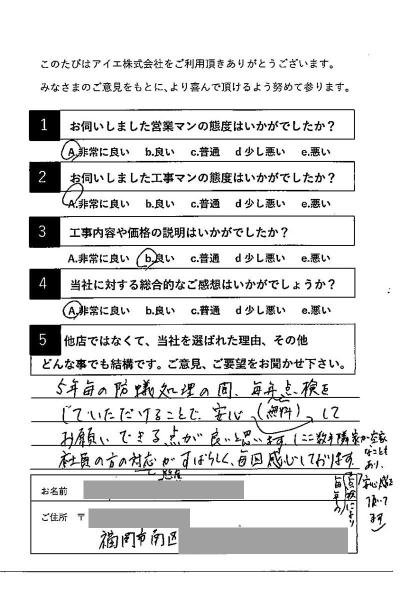 このたびはアイエ株式会社をご利用頂きありがとうございます。
みなさまのご意見をもとに、より喜んで頂けるよう努めて参ります。
1 お伺いしました営業マンの態度はいかがでしたか?
A.非常に良い b.良い c.普通 d 少し悪い e.悪い
2 お伺いしました工事マンの態度はいかがでしたか?
A.非常に良い b.良い c.普通 d 少し悪い e.悪い
3 工事内容や価格の説明はいかがでしたか?
A.非常に良い b.良い c.普通 d 少し悪い e.悪い
4 当社に対する総合的なご感想はいかがでしょうか?
A.非常に良い b.良い c.普通 d 少し悪い e.悪い
5 他店ではなくて、当社を選ばれた理由、その他
どんな事でも結構です。ご意見、ご要望をお聞かせ下さい。
5年毎の防蟻処理の間、毎年点検を
していただけることで、安心(無料)して
お願いできる点が良いと思います。(ここ数年隣家が空家
なことも
あり、
社員の方の対応がすばらしく、毎回感じております
態度
毎年の
点検により
安心感を
頂いて
ます)
お名前
ご住所 〒
福岡市南区